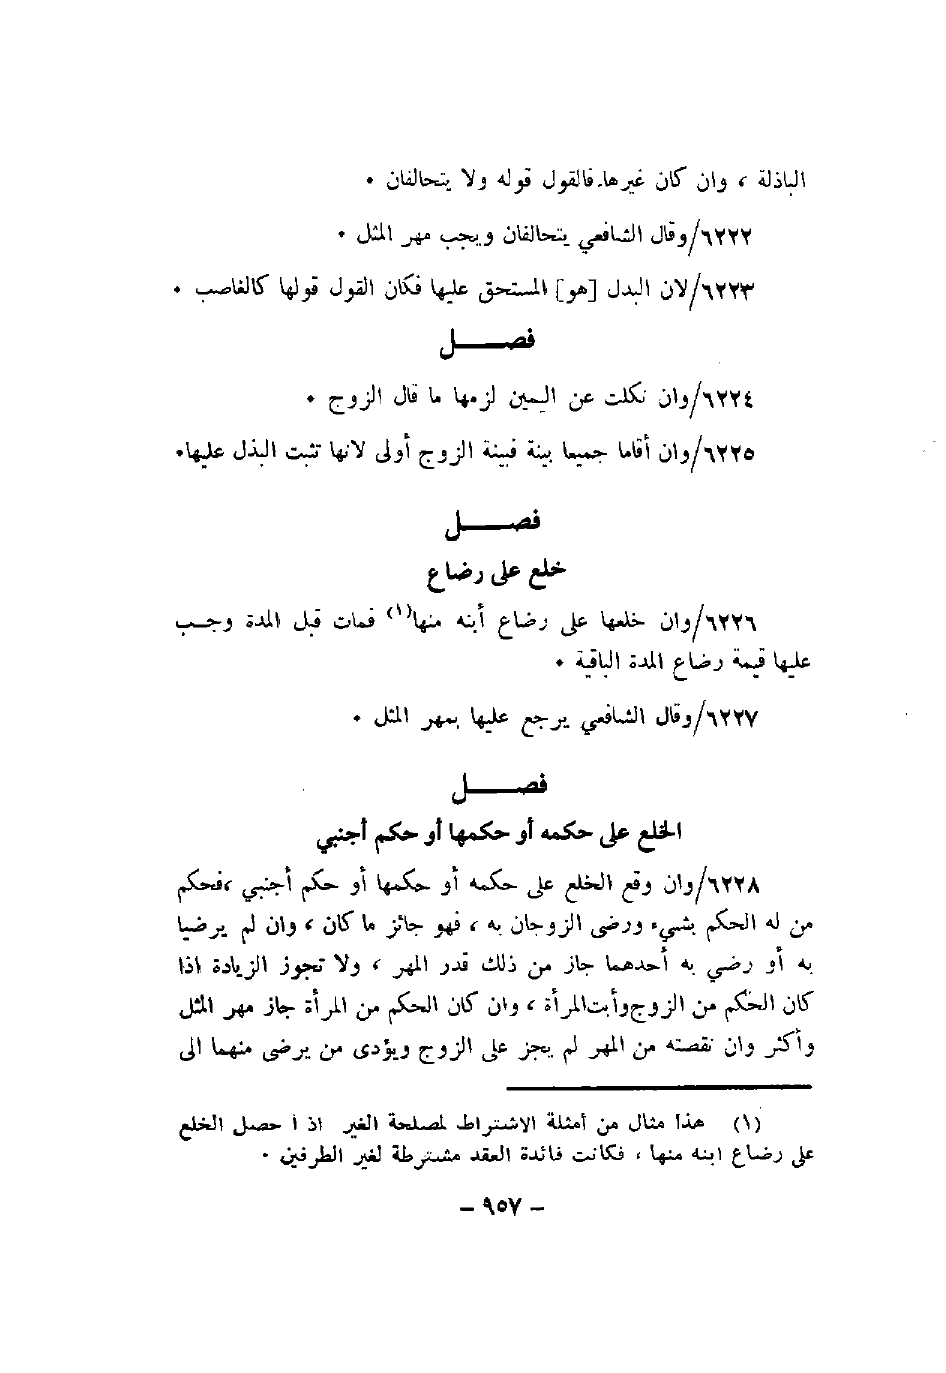 الباذلة ، وان كان غيرها فالقول قوله ولا يتحالفان ٠
٦٢٢٢/وقال الشافعي يتحالفان ويجب مهر المثل ٠
٦٢٢٣/لان البدل [هو] المستحق عليها فكان القول قولها كالغاصب ٠
فصـــــل
٦٢٢٤/وان نكلت عن اليمين لزمها ما قال الزوج ٠
٦٢٢٥/وان أقاما جميعا بينة فبينة الزوج أولى لانها تثبت البذل عليها٠
فصـــــل
خلع على رضاع
٦٢٢٦/وان خلعها على رضاع أبنه منها(١) فمات قبل المدة وجــب
عليها قيمة رضاع المدة الباقية ٠
٦٢٢٧/وقال الشافعي يرجع عليها بمهر المثل ٠
فصـــــل
الخلع على حكمه أو حكمها أو حكم أجنبي
٦٢٢٨/وان وقع الخلع على حكمه أو حكمها أو حكم أجنبي ،فحكم
من له الحكم بشيء ورضى الزوجان به ، فهو جائز ما كان ، وان لم يرضيا
به أو رضي به أحدهما جاز من ذلك قدر المهر ، ولا تجوز الزيادة اذا
كان الحكم من الزوج وأبت المرأة ، وان كان الحكم من المرأة جاز مهر المثل
وأكثر وان نقصته من المهر لم يجز على الزوج ويؤدى من يرضى منهما الى
(١) هذا مثال من أمثلة الاشتراط لمصلحة الغير اذ ا حصل الخلع
على رضاع ابنه منها ، فكانت فائدة العقد مشترطة لغير الطرفين ٠
– ٩٥٧ –